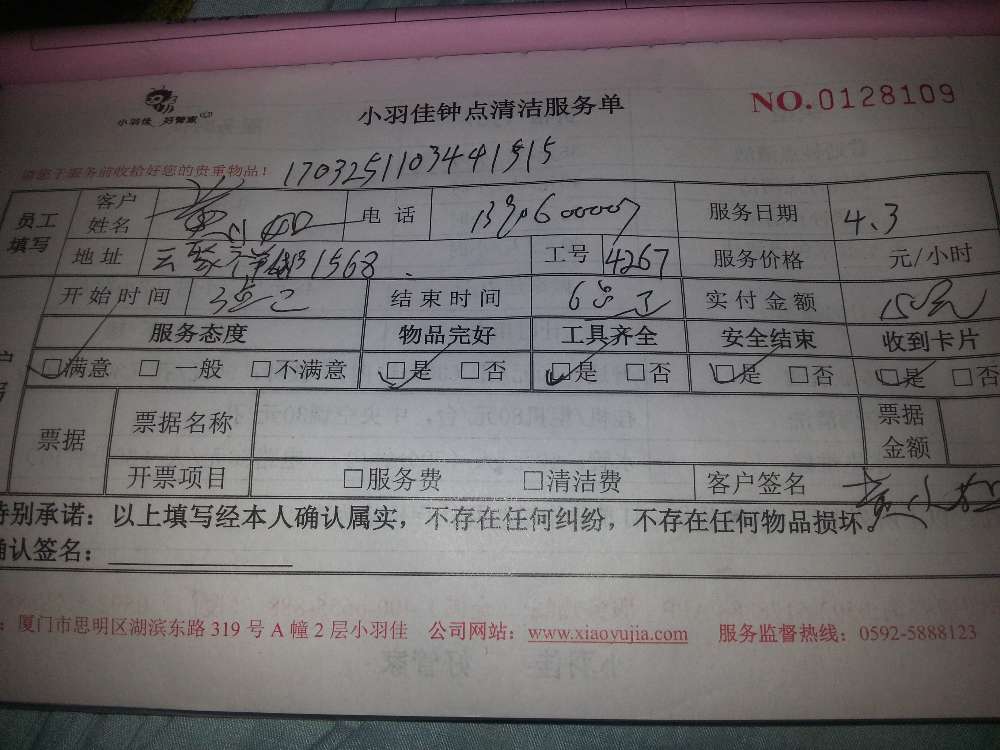 小羽佳 好管家
小羽佳钟点清洁服务单
NO.0128109
请您于服务前收拾好您的贵重物品！
170325110344 1515
员工填写 客户姓名 黄 电话 服务日期 4.3
地址 云 1568 工号 4267 服务价格 元/小时
开始时间 结束时间 实付金额
服务态度 物品完好 工具齐全 安全结束 收到卡片
□满意 □一般 □不满意 □是 □否 □是 □否 □是 □否 □是 □否
票据 票据名称 票据金额
开票项目 □服务费 □清洁费 客户签名 黄小
特别承诺：以上填写经本人确认属实，不存在任何纠纷，不存在任何物品损坏。
确认签名：
：厦门市思明区湖滨东路 319 号 A 幢 2 层小羽佳 公司网站：www.xiaoyujia.com 服务监督热线：0592-5888123